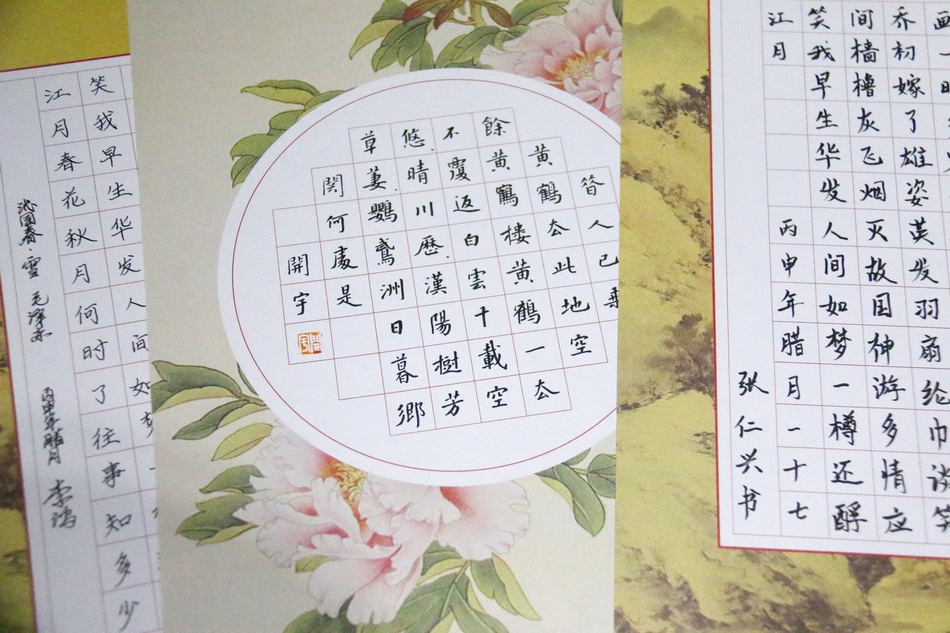 乔初嫁了雄姿英发羽扇纶巾谈笑
间樯橹灰飞烟灭故国神游多情应
笑我早生华发人间如梦一樽还酹
江月 丙申年腊月一十七
张仁兴书
昔人已乘
黄鹤去此地空
餘黄鶴楼黄鶴一去
不覆返白雲千載空
悠.晴川歷漢陽樹芳
草萋.鹦鹉洲日暮鄉
関何處是
開宇
笑我早生华发人间如梦
江月春花秋月何时了往事知多少
沁园春·雪 毛泽东 丙申年腊月